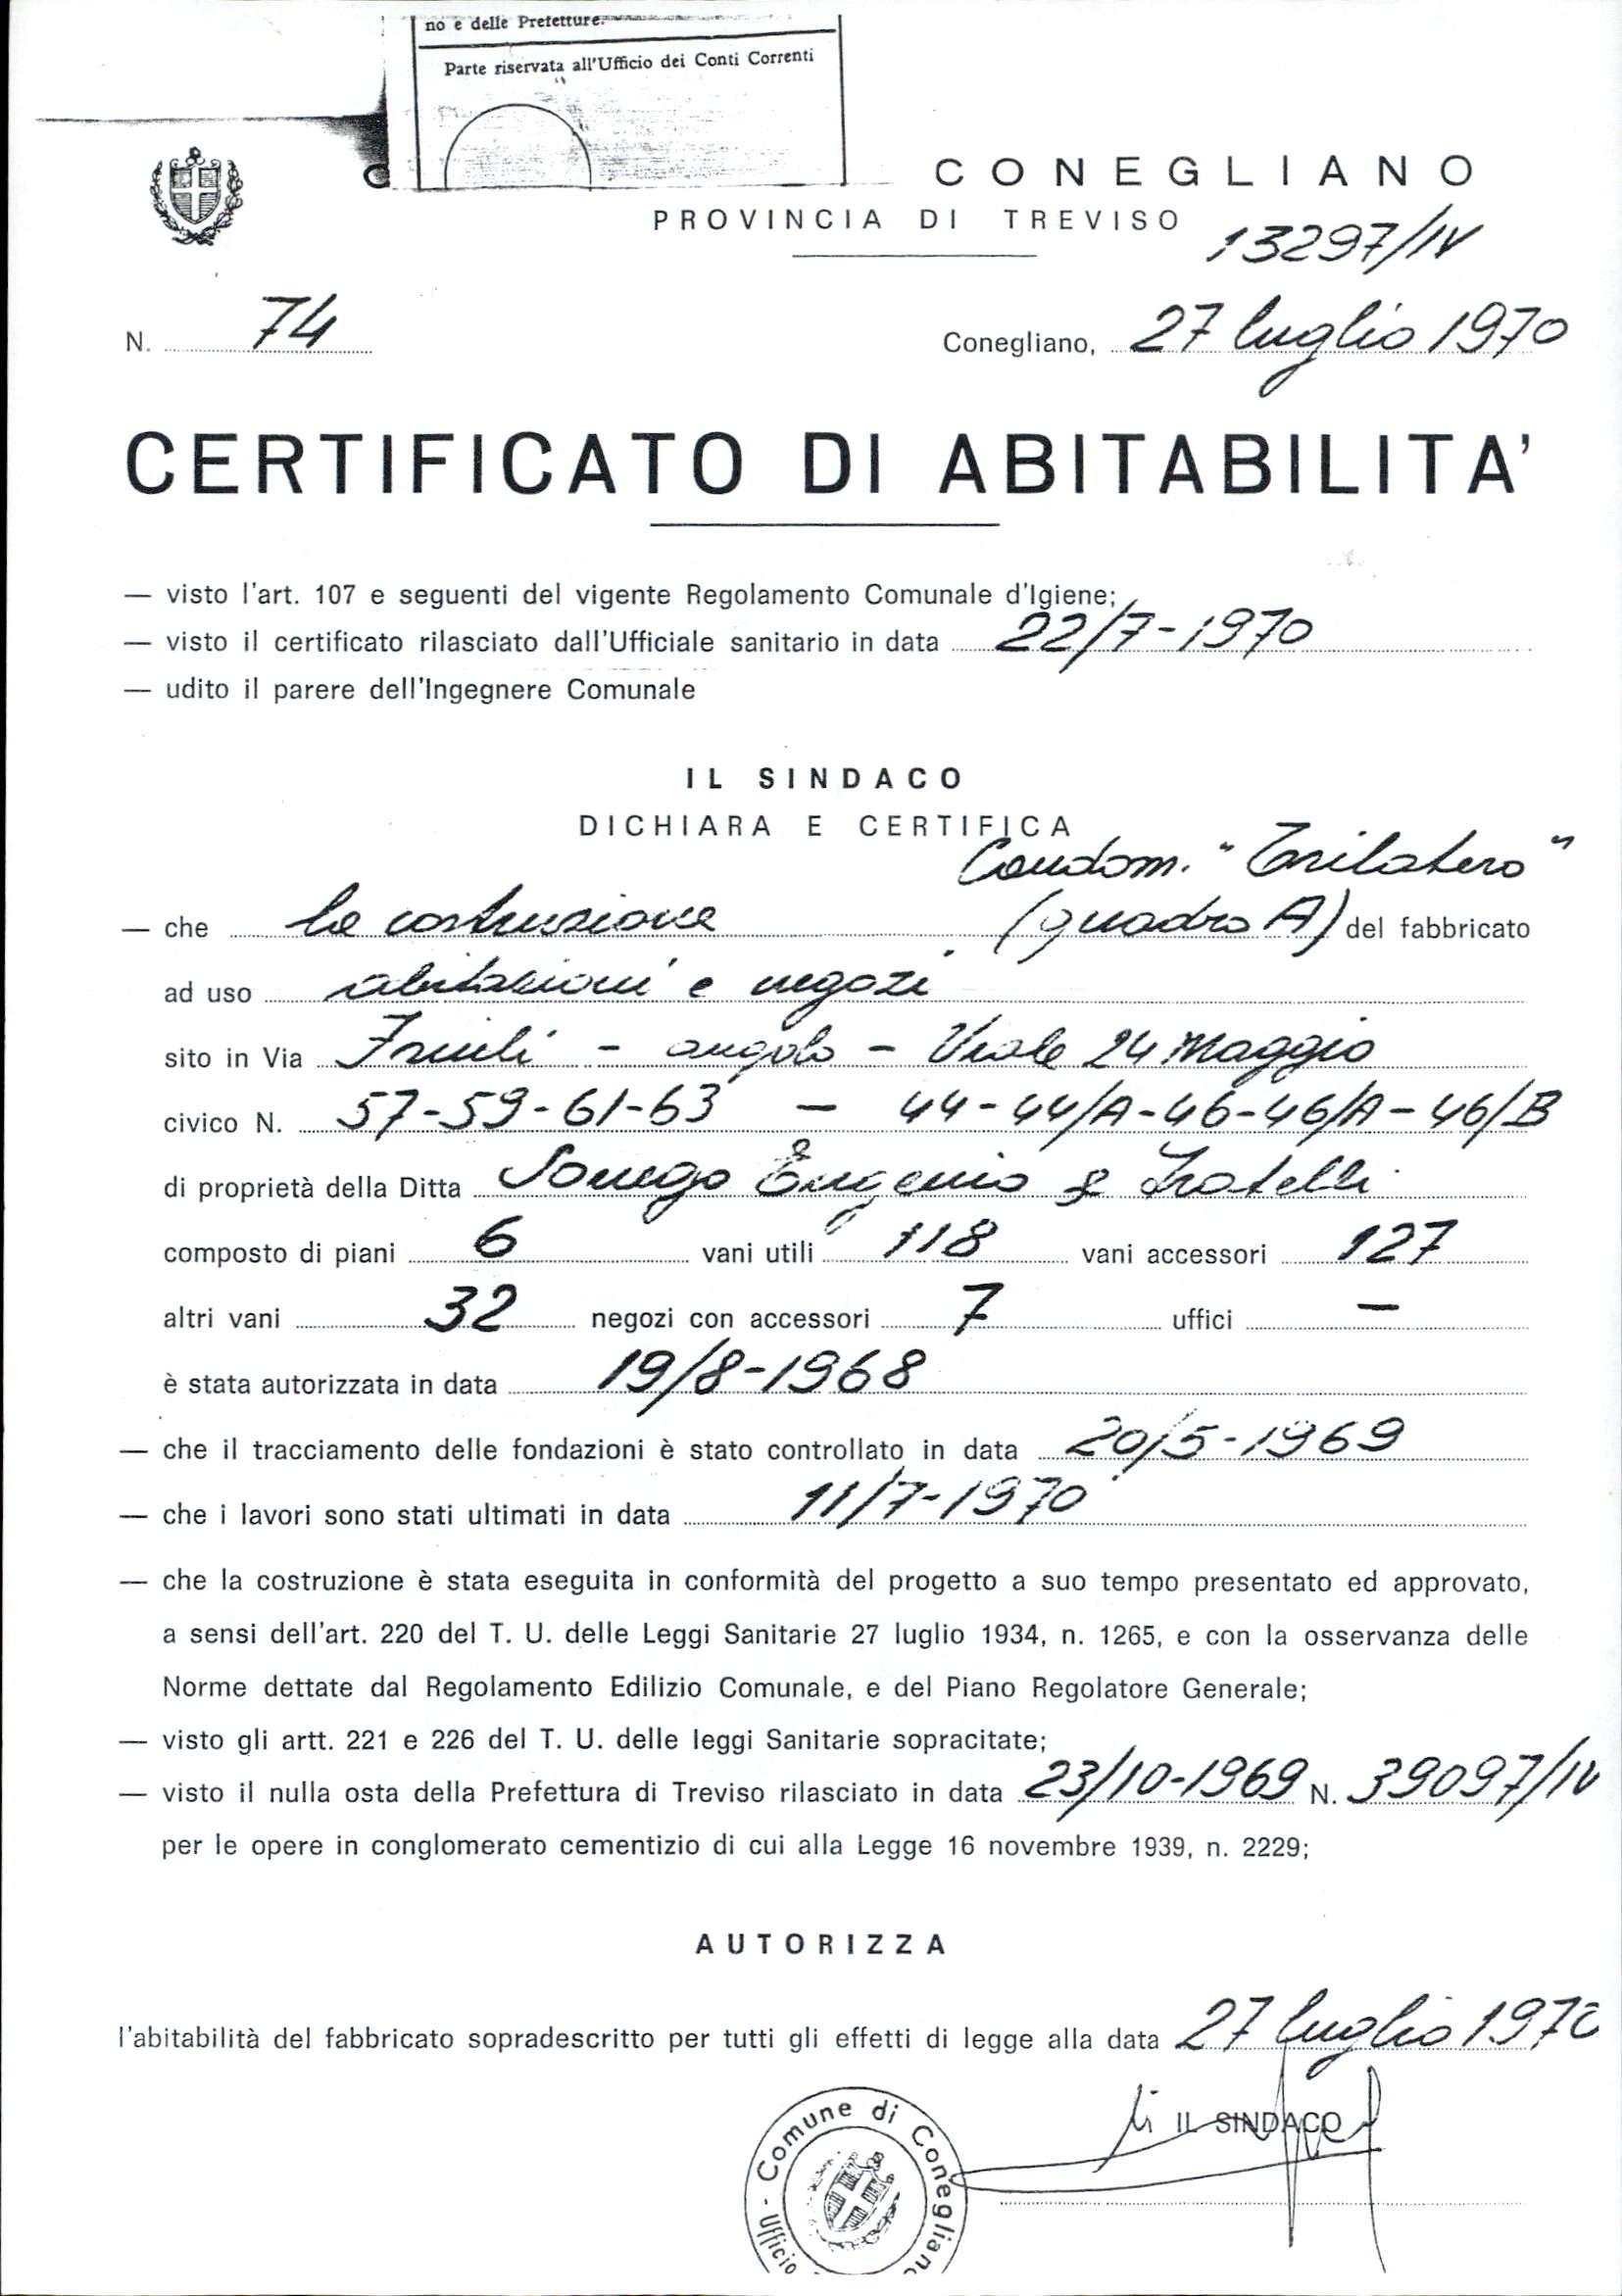 no e delle Prefetture.
Parte riservata all'Ufficio dei Conti Correnti
C CONEGLIANO
PROVINCIA DI TREVISO
13297/IV
N. 74 Conegliano, 27 luglio 1970
CERTIFICATO DI ABITABILITA'
— visto l'art. 107 e seguenti del vigente Regolamento Comunale d'Igiene;
— visto il certificato rilasciato dall'Ufficiale sanitario in data 22/7-1970
— udito il parere dell'Ingegnere Comunale
IL SINDACO
DICHIARA E CERTIFICA
Condom. "Trilatero"
— che la costruzione (quadro A) del fabbricato
ad uso abitazioni e negozi
sito in Via Friuli - angolo - Viale 24 Maggio
civico N. 57-59-61-63 — 44-44/A-46-46/A-46/B
di proprietà della Ditta Sonego Eugenio & Fratelli
composto di piani 6 vani utili 118 vani accessori 127
altri vani 32 negozi con accessori 7 uffici —
è stata autorizzata in data 19/8-1968
— che il tracciamento delle fondazioni è stato controllato in data 20/5-1969
— che i lavori sono stati ultimati in data 11/7-1970
— che la costruzione è stata eseguita in conformità del progetto a suo tempo presentato ed approvato,
a sensi dell'art. 220 del T. U. delle Leggi Sanitarie 27 luglio 1934, n. 1265, e con la osservanza delle
Norme dettate dal Regolamento Edilizio Comunale, e del Piano Regolatore Generale;
— visto gli artt. 221 e 226 del T. U. delle leggi Sanitarie sopracitate;
— visto il nulla osta della Prefettura di Treviso rilasciato in data 23/10-1969 N. 39097/IV
per le opere in conglomerato cementizio di cui alla Legge 16 novembre 1939, n. 2229;
AUTORIZZA
l'abitabilità del fabbricato sopradescritto per tutti gli effetti di legge alla data 27 luglio 1970
IL SINDACO
Comune di Conegliano - Ufficio